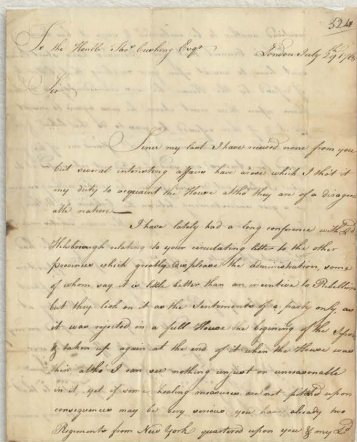 To the Honble Thos Cushing Esqr London July 29th
Sir
Since my last I have received none from you
but several interesting affairs have arose which I tho't it
my duty to acquaint the House altho they are of a disagree
able nature
I have lately had a long conference with Ld
Hilsborough relating to your circulating letter to the other
provinces which greatly displeases the administration, some
of whom say it is little better than an incentive to Rebellion
but they look on it as the Sentiments of a party only, as
it was rejected in a full House the begining of the Session
& taken up again at the end of it when the House was
thin altho I can see nothing unjust or unreasonable
in it yet if some healing measures are not pitched upon
consequences may be very serious you have already two
Regiments from New York quartered upon you & my Ld